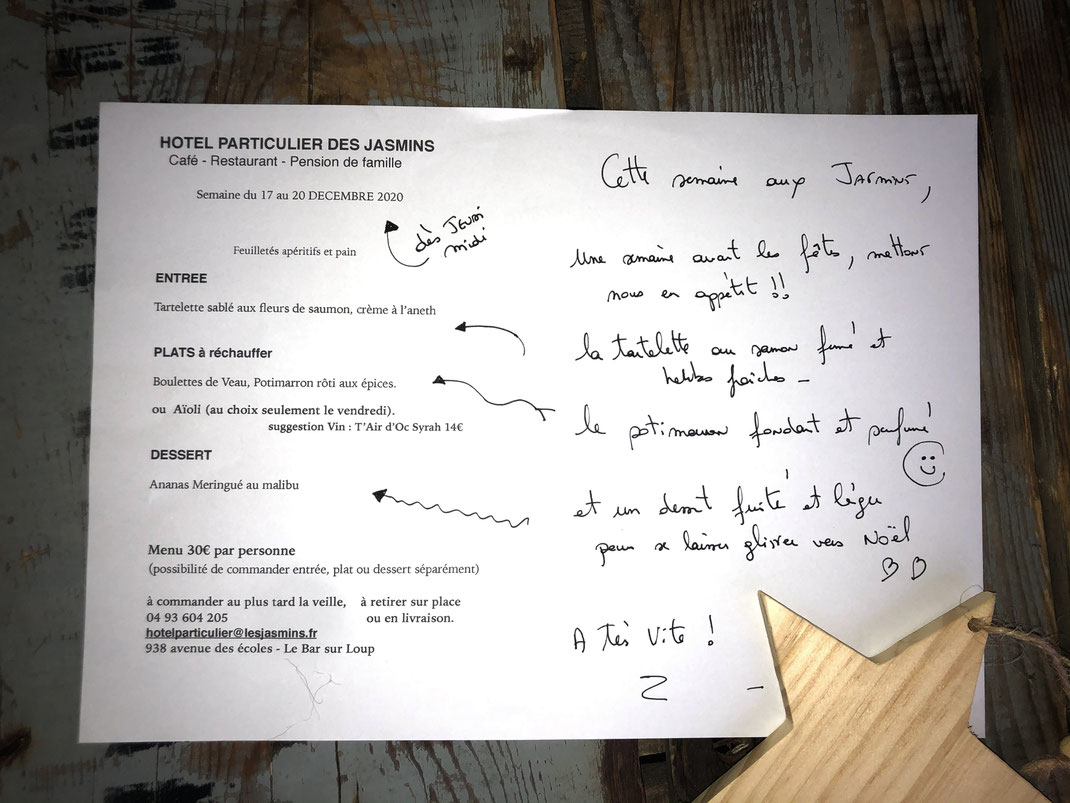 HOTEL PARTICULIER DES JASMINS
Café - Restaurant - Pension de famille
Semaine du 17 au 20 DECEMBRE 2020
dès Jeudi
midi
Feuilletés apéritifs et pain
ENTREE
Tartelette sablé aux fleurs de saumon, crème à l'aneth
PLATS à réchauffer
Boulettes de Veau, Potimarron rôti aux épices.
ou Aïoli (au choix seulement le vendredi).
suggestion Vin : T'Air d'Oc Syrah 14€
DESSERT
Ananas Meringué au malibu
Menu 30€ par personne
(possibilité de commander entrée, plat ou dessert séparément)
à commander au plus tard la veille, à retirer sur place
04 93 604 205 ou en livraison.
hotelparticulier@lesjasmins.fr
938 avenue des écoles - Le Bar sur Loup
Cette semaine aux JASMINS,
Une semaine avant les fêtes, mettons
nous en appétit !!
la tartelette au saumon fumé et
herbes fraîches -
le potimarron fondant et parfumé
et un dessert fruité et léger
pour se laisser glisser vers Noël
A très vite !